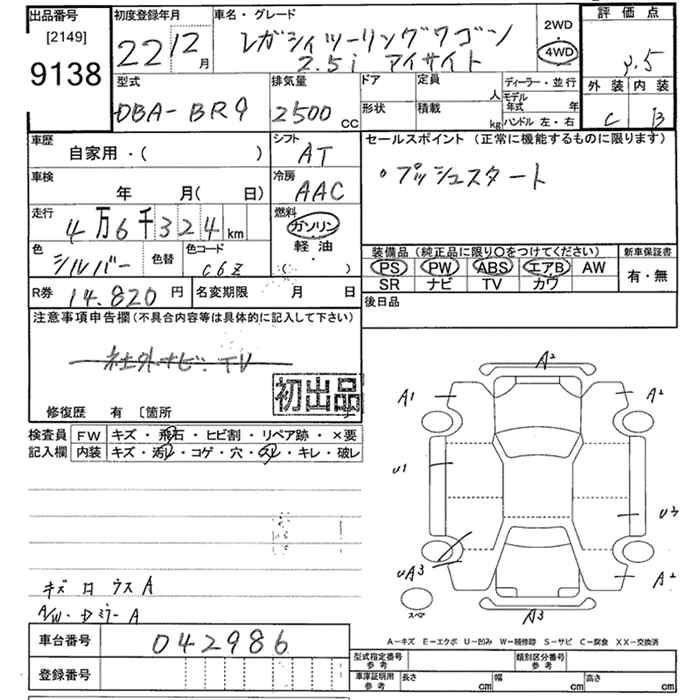 出品番号
[2149]
9138
初度登録年月
22 12月
車名・グレード
レガシィツーリングワゴン
2.5i アイサイト
2WD
4WD
評価点
3.5
外装 内装
C B
型式
DBA-BR9
排気量
2500 CC
ドア
形状
定員 人
積載 kg
ディーラー・並行
モデル年式 年
ハンドル 左・右
車歴
自家用・( )
シフト
AT
セールスポイント (正常に機能するものに限ります)
・プッシュスタート
車検
年 月(日)
冷房
AAC
走行
4万6千324km
燃料
ガソリン
軽油
( )
色
シルバー
色替
色コード
C6Z
装備品 (純正品に限り○をつけてください)
PS PW ABS エアB AW
SR ナビ TV カワ
新車保証書
有・無
R券 14.820円
名変期限 月 日
後日品
注意事項申告欄 (不具合内容等は具体的に記入して下さい)
社外ナビ・TV
初出品
修復歴 有 〔箇所
検査員 FW キズ・飛石・ヒビ割・リペア跡・×要
記入欄 内装 キズ・汚レ・コゲ・穴・スレ・キレ・破レ
A2
A1
A2
U1
U3
UA3
A2
スペア
A3
キズ ロウスA
A/W・DミラーA
A−キズ E−エクボ U−凹み W−補修跡 S−サビ C−腐食 XX−交換済
車台番号 042986
登録番号
型式指定番号 参考
類別区分番号 参考
車庫証明用 参考 長さ cm 幅 cm 高さ cm